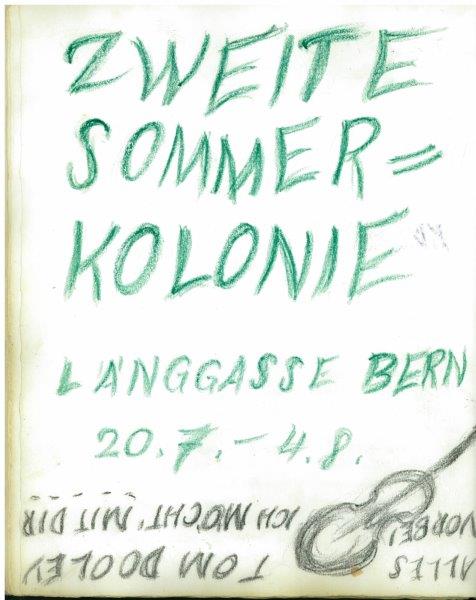 ZWEITE
SOMMER=
KOLONIE
LÄNGGASSE BERN
20.7.-4.8.
ALLES
VORBEI,
TOM DOOLEY
ICH MÖCHT' MIT DIR